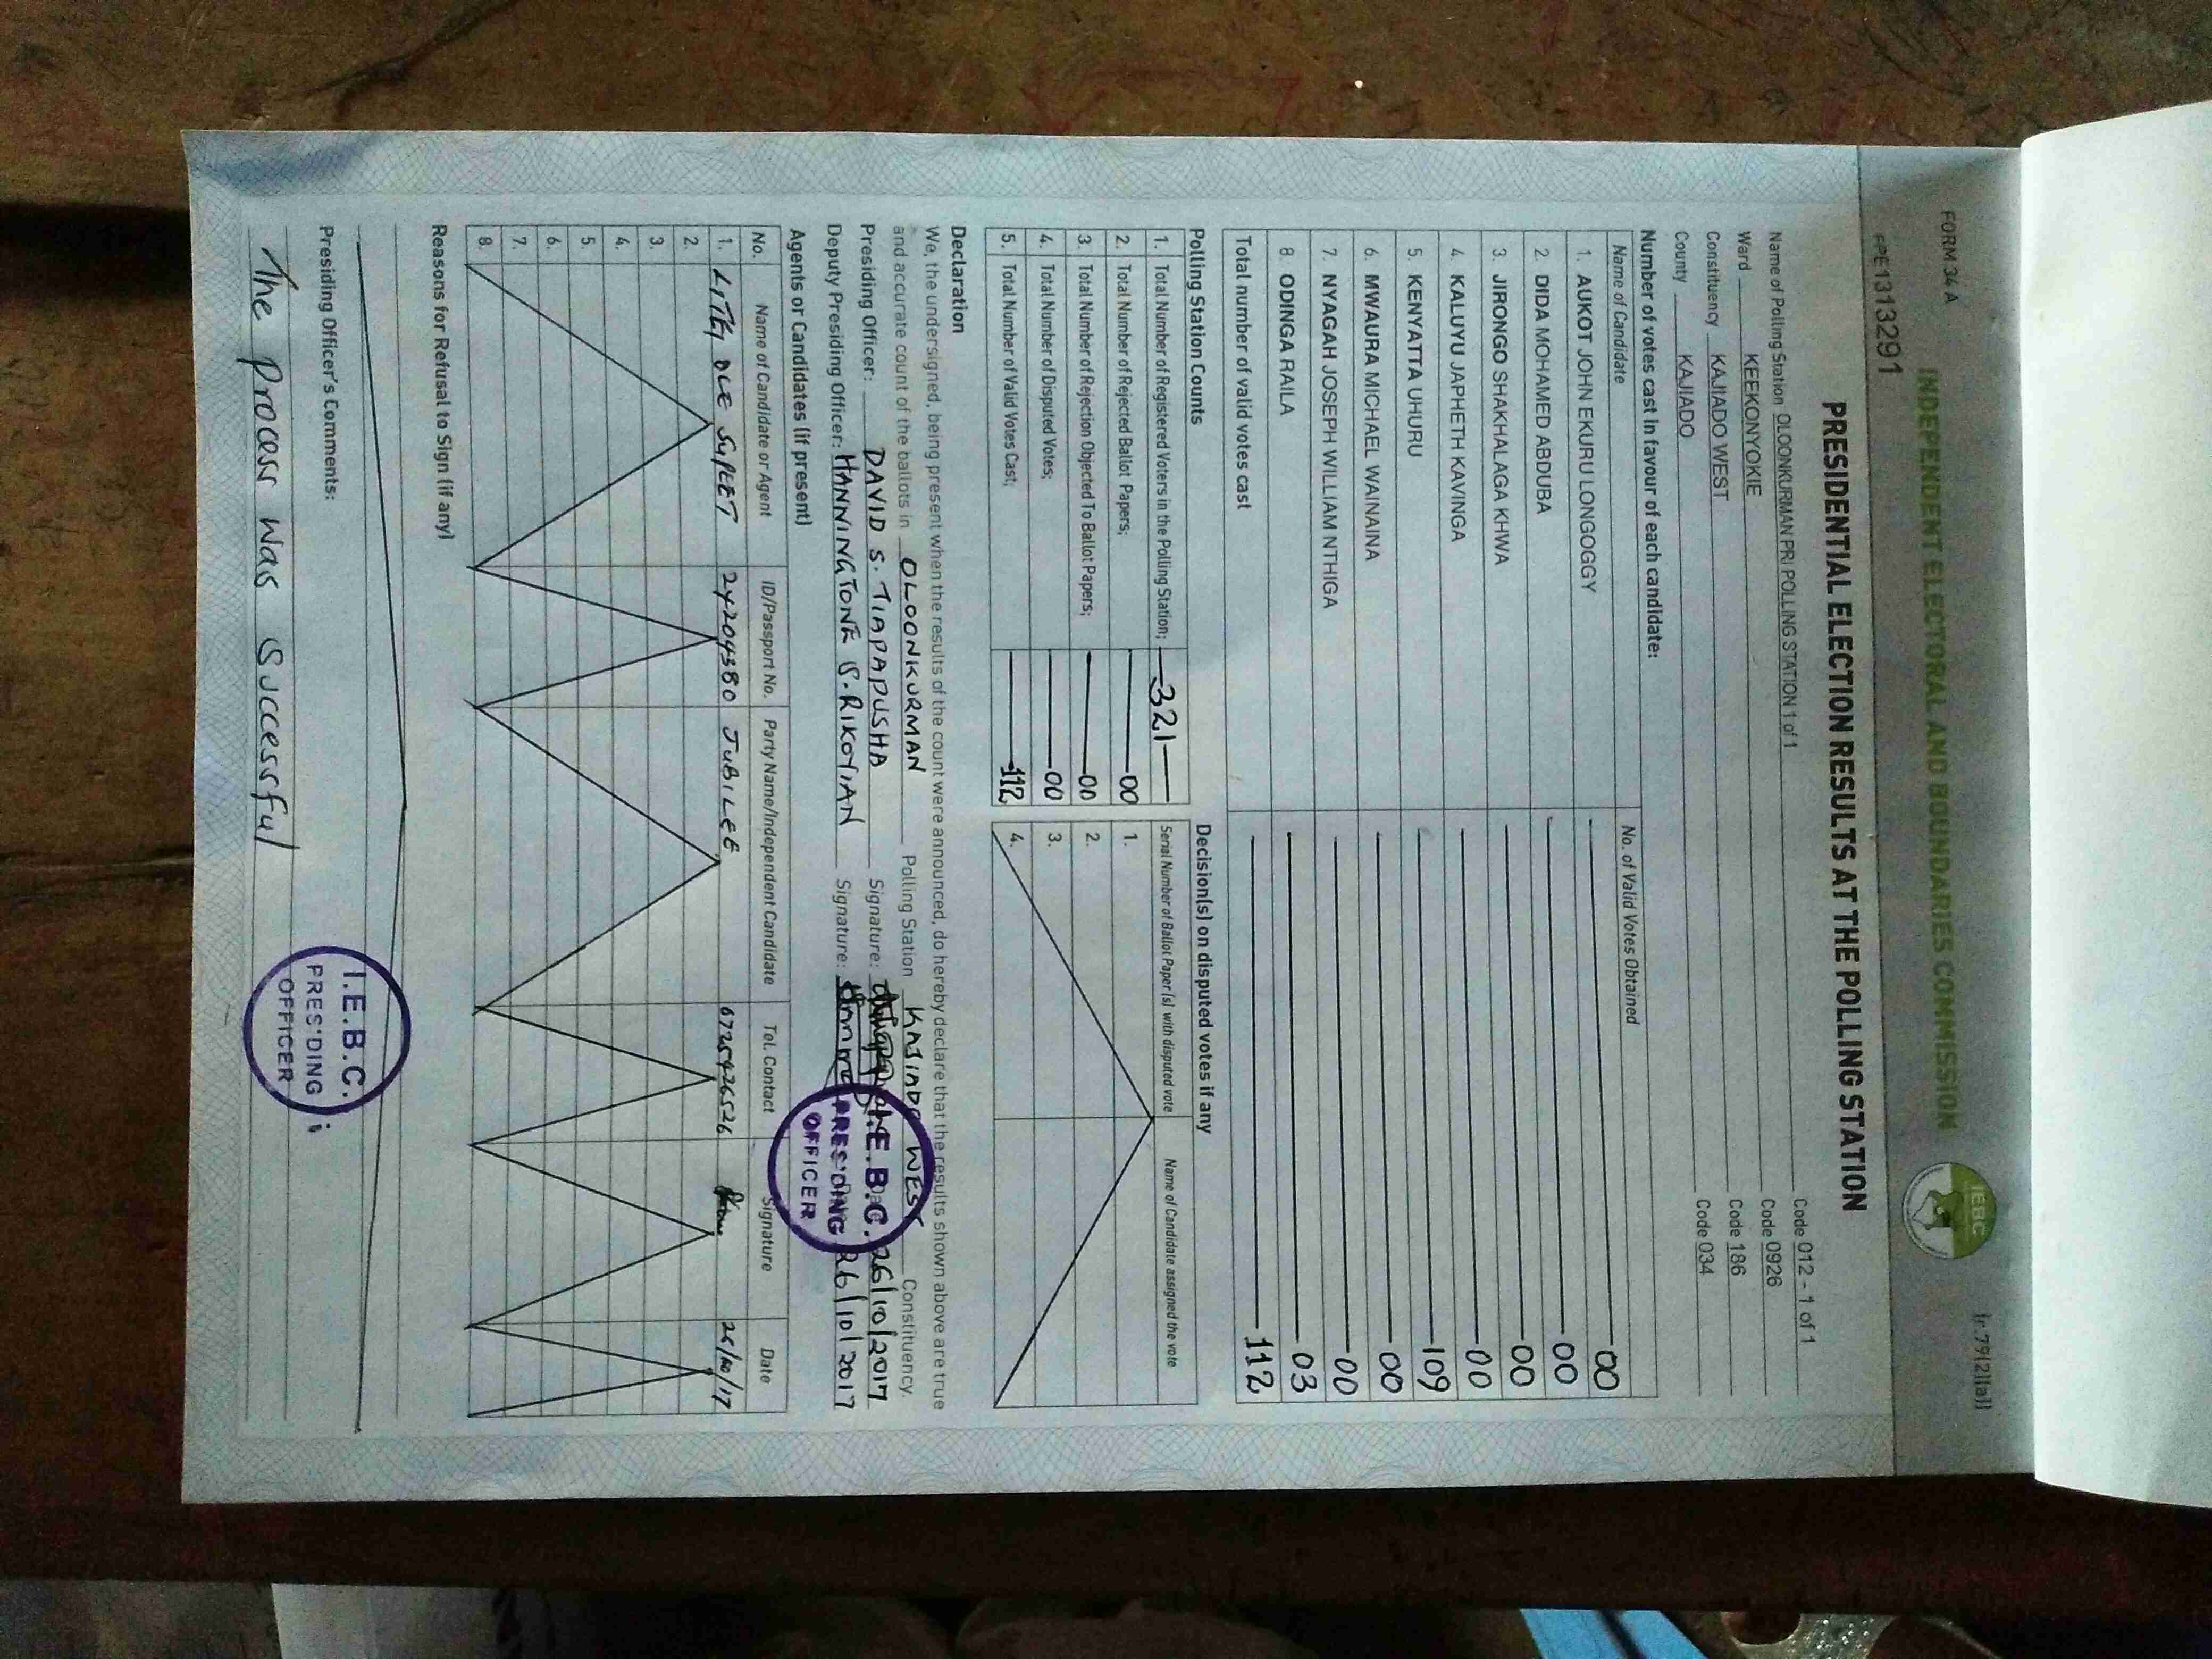 FORM 34 A
(r.79(2)(a))
INDEPENDENT ELECTORAL AND BOUNDARIES COMMISSION
IEBC
PPE1313291
PRESIDENTIAL ELECTION RESULTS AT THE POLLING STATION
Name of Polling Station OLOONKURMAN PRI POLLING STATION 1 of 1 Code 012 - 1 of 1
Ward KEEKONYOKIE Code 0926
Constituency KAJIADO WEST Code 186
County KAJIADO Code 034
Number of votes cast in favour of each candidate:
Name of Candidate No. of Valid Votes Obtained
1. AUKOT JOHN EKURU LONGOGGY 00
2. DIDA MOHAMED ABDUBA 00
3. JIRONGO SHAKHALAGA KHWA 00
4. KALUYU JAPHETH KAVINGA 00
5. KENYATTA UHURU 109
6. MWAURA MICHAEL WAINAINA 00
7. NYAGAH JOSEPH WILLIAM NTHIGA 00
8. ODINGA RAILA 03
Total number of valid votes cast 112
Polling Station Counts
1. Total Number of Registered Voters in the Polling Station; 321
2. Total Number of Rejected Ballot Papers; 00
3. Total Number of Rejection Objected To Ballot Papers; 00
4. Total Number of Disputed Votes; 00
5. Total Number of Valid Votes Cast; 112
Decision(s) on disputed votes if any
Serial Number of Ballot Paper (s) with disputed vote Name of Candidate assigned the vote
1.
2.
3.
4.
Declaration
We, the undersigned, being present when the results of the count were announced, do hereby declare that the results shown above are true
and accurate count of the ballots in OLOONKURMAN Polling Station KAJIADO WEST Constituency.
Presiding Officer: DAVID S. TIAPAPUSHA Signature: 26/10/2017
Deputy Presiding Officer: HANNINGTONE S. RIKOYIAN Signature: 26/10/2017
I.E.B.C.
PRES'DING
OFFICER
Agents or Candidates (if present)
No. Name of Candidate or Agent ID/Passport No. Party Name/Independent Candidate Tel. Contact Signature Date
1. OLE 24204380 JUBILEE 0725426526 26/10/17
2.
3.
4.
5.
6.
7.
8.
Reasons for Refusal to Sign (if any)
Presiding Officer's Comments:
The process was successful
I.E.B.C.
PRES'DING
OFFICER